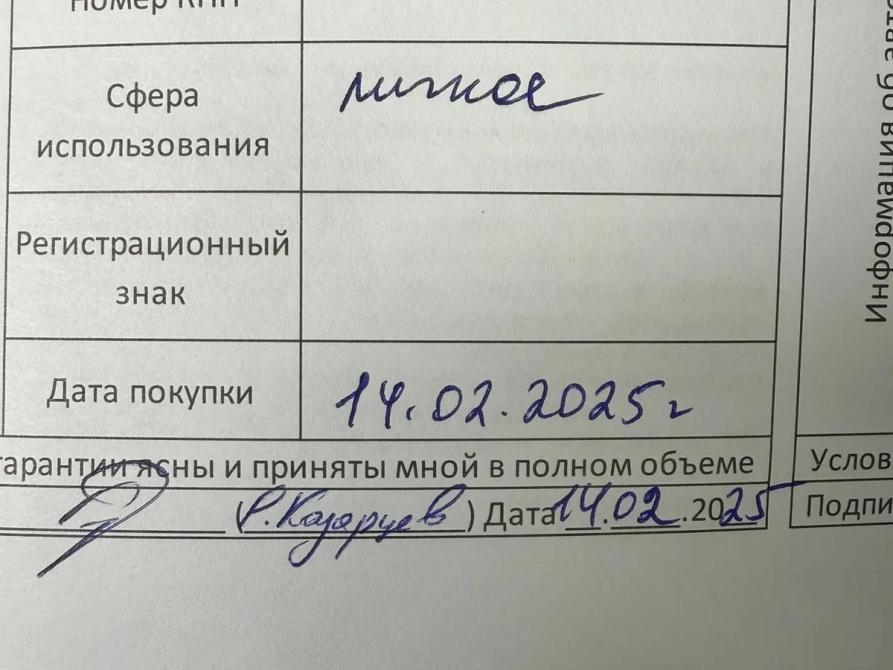 Номер КПП
Сфера использования личное
Регистрационный знак
Дата покупки 14.02.2025г
гарантии ясны и приняты мной в полном объеме
(Р. Казарцев) Дата 14.02.2025
Информация об авто
Услов
Подпи